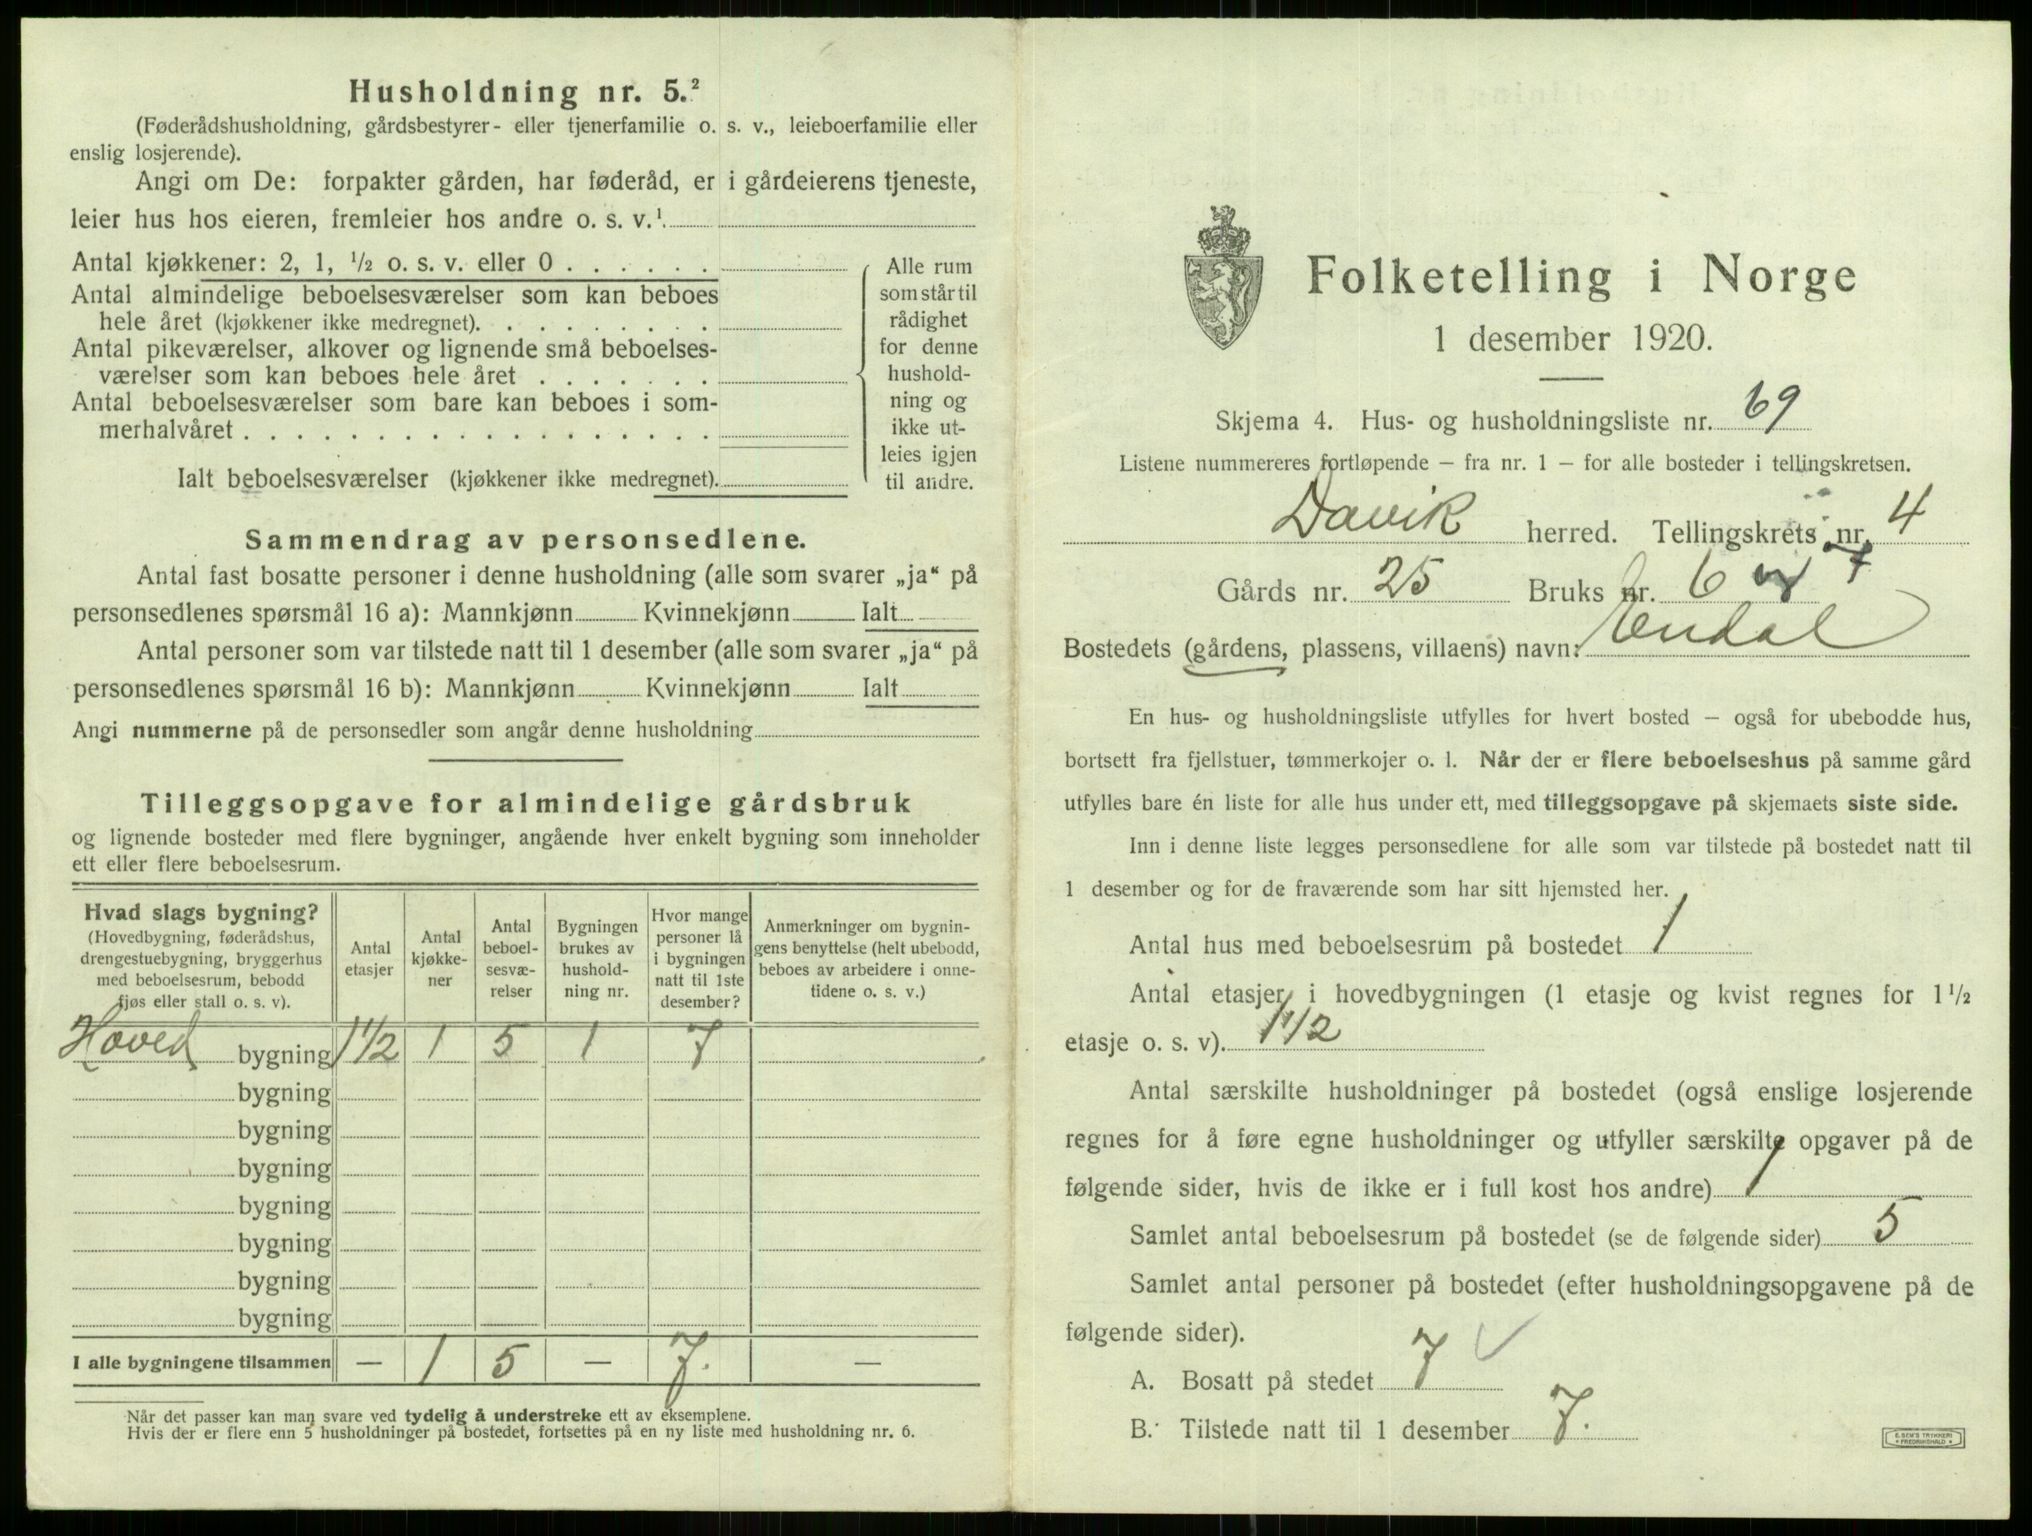 Husholdning nr. 5.²
(Føderådshusholdning, gårdsbestyrer- eller tjenerfamilie o. s. v., leieboerfamilie eller
enslig losjerende).
Angi om De: forpakter gården, har føderåd, er i gårdeierens tjeneste,
leier hus hos eieren, fremleier hos andre o. s. v.¹
Antal kjøkkener: 2, 1, ½ o. s. v. eller 0 . . . . . .
Antal almindelige beboelsesværelser som kan beboes
hele året (kjøkkener ikke medregnet). . . . . . . . .
Antal pikeværelser, alkover og lignende små beboelses-
værelser som kan beboes hele året . . . . . . .
Antal beboelsesværelser som bare kan beboes i som-
merhalvåret . . . . . . . . . . . . . . . . . .
Ialt beboelsesværelser (kjøkkener ikke medregnet).
Alle rum
som står til
rådighet
for denne
hushold-
ning og
ikke ut-
leies igjen
til andre.
Sammendrag av personsedlene.
Antal fast bosatte personer i denne husholdning (alle som svarer „ja“ på
personsedlenes spørsmål 16 a): Mannkjønn Kvinnekjønn Ialt
Antal personer som var tilstede natt til 1 desember (alle som svarer „ja“ på
personsedlenes spørsmål 16 b): Mannkjønn Kvinnekjønn Ialt
Angi nummerne på de personsedler som angår denne husholdning
Tilleggsopgave for almindelige gårdsbruk
og lignende bosteder med flere bygninger, angående hver enkelt bygning som inneholder
ett eller flere beboelsesrum.
Hvad slags bygning?
(Hovedbygning, føderådshus,
drengestuebygning, bryggerhus
med beboelsesrum, bebodd
fjøs eller stall o. s. v).
Antal
etasjer
Antal
kjøkke-
ner
Antal
beboel-
sesvæ-
relser
Bygningen
brukes av
hushold-
ning nr.
Hvor mange
personer lå
i bygningen
natt til 1ste
desember?
Anmerkninger om bygnin-
gens benyttelse (helt ubebodd,
beboes av arbeidere i onne-
tidene o. s. v.)
Hoved bygning 1½ 1 5 1 7
bygning
bygning
bygning
bygning
bygning
bygning
bygning
I alle bygningene tilsammen — 1 5 — 7. —
Når det passer kan man svare ved tydelig å understreke ett av eksemplene.
Hvis der er flere enn 5 husholdninger på bostedet, fortsettes på en ny liste med husholdning nr. 6.
Folketelling i Norge
1 desember 1920.
Skjema 4. Hus- og husholdningsliste nr. 69
Listene nummereres fortløpende – fra nr. 1 – for alle bosteder i tellingskretsen.
Davik herred. Tellingskrets nr. 4
Gårds nr. 25 Bruks nr. 6 7
Bostedets (gårdens, plassens, villaens) navn: Endal
En hus- og husholdningsliste utfylles for hvert bosted – også for ubebodde hus,
bortsett fra fjellstuer, tømmerkojer o. l. Når der er flere beboelseshus på samme gård
utfylles bare én liste for alle hus under ett, med tilleggsopgave på skjemaets siste side.
Inn i denne liste legges personsedlene for alle som var tilstede på bostedet natt til
1 desember og for de fraværende som har sitt hjemsted her.
Antal hus med beboelsesrum på bostedet 1
Antal etasjer i hovedbygningen (1 etasje og kvist regnes for 1½
etasje o. s. v). 1½
Antal særskilte husholdninger på bostedet (også enslige losjerende
regnes for å føre egne husholdninger og utfyller særskilte opgaver på de
følgende sider, hvis de ikke er i full kost hos andre) 1
Samlet antal beboelsesrum på bostedet (se de følgende sider) 5
Samlet antal personer på bostedet (efter husholdningsopgavene på de
følgende sider).
A. Bosatt på stedet 7 ✓
B. Tilstede natt til 1 desember 7.
E. SEM'S TRYKKERI
FREDRIKSHALD